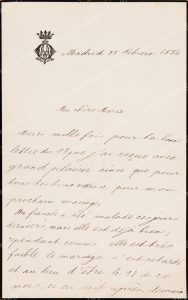 Madrid 25 Febrero 1886
Ma chère Marie
Merci mille fois pour ta bonne
lettre du 12 que j'ai reçue avec
grand plaisir ainsi que pour
tous tes bons vœux pour mon
prochain mariage.
Ma fiancée a été malade ces jours
derniers mais elle est déjà bien;
cependant comme elle est très
faible le mariage s'est retardé
et au lieu d'être le 27 de ce
mois, ce